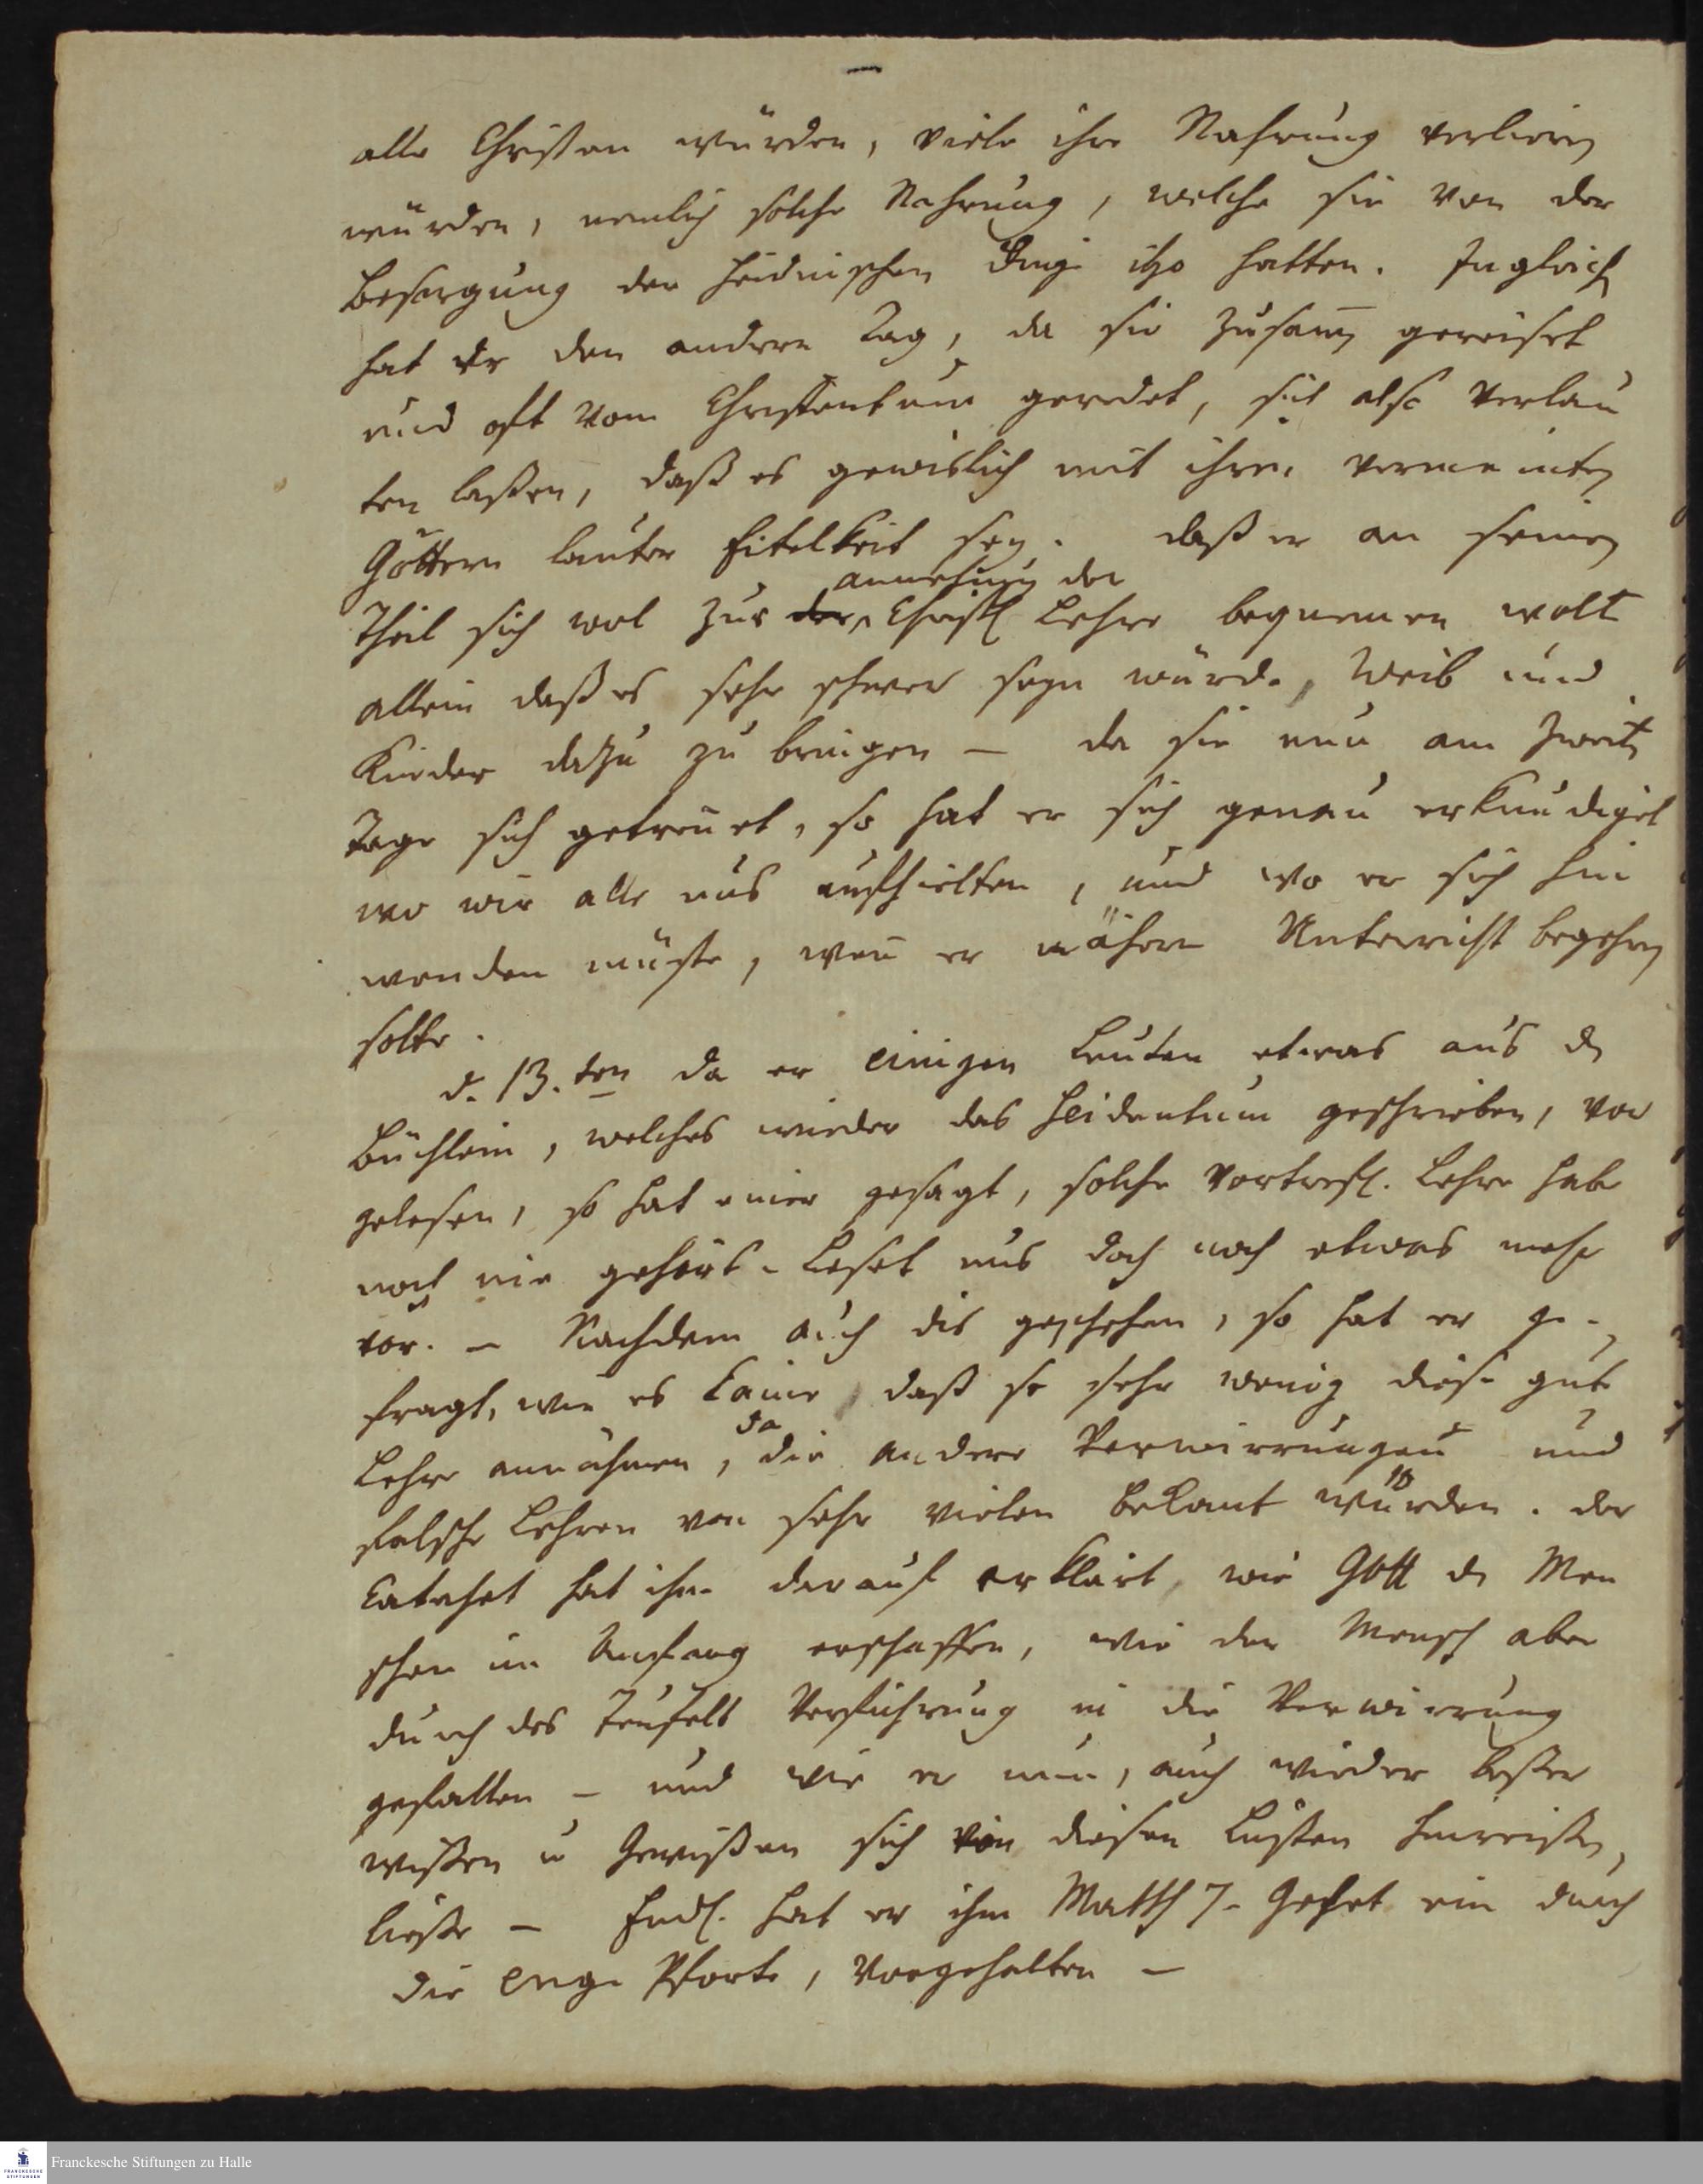 alle Christen würden, viele ihre Nahrung verlieren
würden, nemlich solche Nahrung, welche sie von der
Besorgung der heidnischen Dinge itzo hatten. Ingleich
hat er den andern Tag, da sie zusam̅ gereiset
und oft vom Christentum geredet, sich also verlau
ten laßen, daß es gewislich mit ihren vermeinten
Göttern lauter Eitelkeit sey. daß er an seinen
annehmung der
Theil sich wol zur der Christl Lehre bequemen wolt
allein daß es sehr schwer seyn würde, Weib und
Kinder dazu zu bringen – da sie nun am zweiten
Tage sich getrennet, so hat er sich genau erkundiget
wo wir alle uns aufhielten, und wo er sich hin
wenden müste, wen̅ er nähern Unterricht begehren
solte.
d. 13.ten da er einigen Leuten etwas aus d
Büchlein, welches wieder das Heidentum geschrieben, vor
gelesen, so hat einer gesagt, solche vortrefl. Lehre habe
noch nie gehört. Leset uns doch noch etwas mehr
vor. – Nachdem auch dis geschehen, so hat er ge-
fragt, wie es käme, daß so sehr wenig diese gute
Lehre annähmen, da die andere Verwirrungen und
falsche Lehren von sehr vielen bekant würden. der
Catechet hat ihm darauf erklärt, wie Gott d Men
schen im Anfang erschaffen, wie der Mensch aber
durch des Teufels Verführung in die Verwirrung
gefallen – und wie er nun, auch wieder beßer
wißen u Gewißen sich von diesen Lüsten hinreißen
ließe – Endl. hat er ihm Matth 7. Gehet ein durch
die enge Pforte, vorgehalten –
Franckesche Stiftungen zu Halle